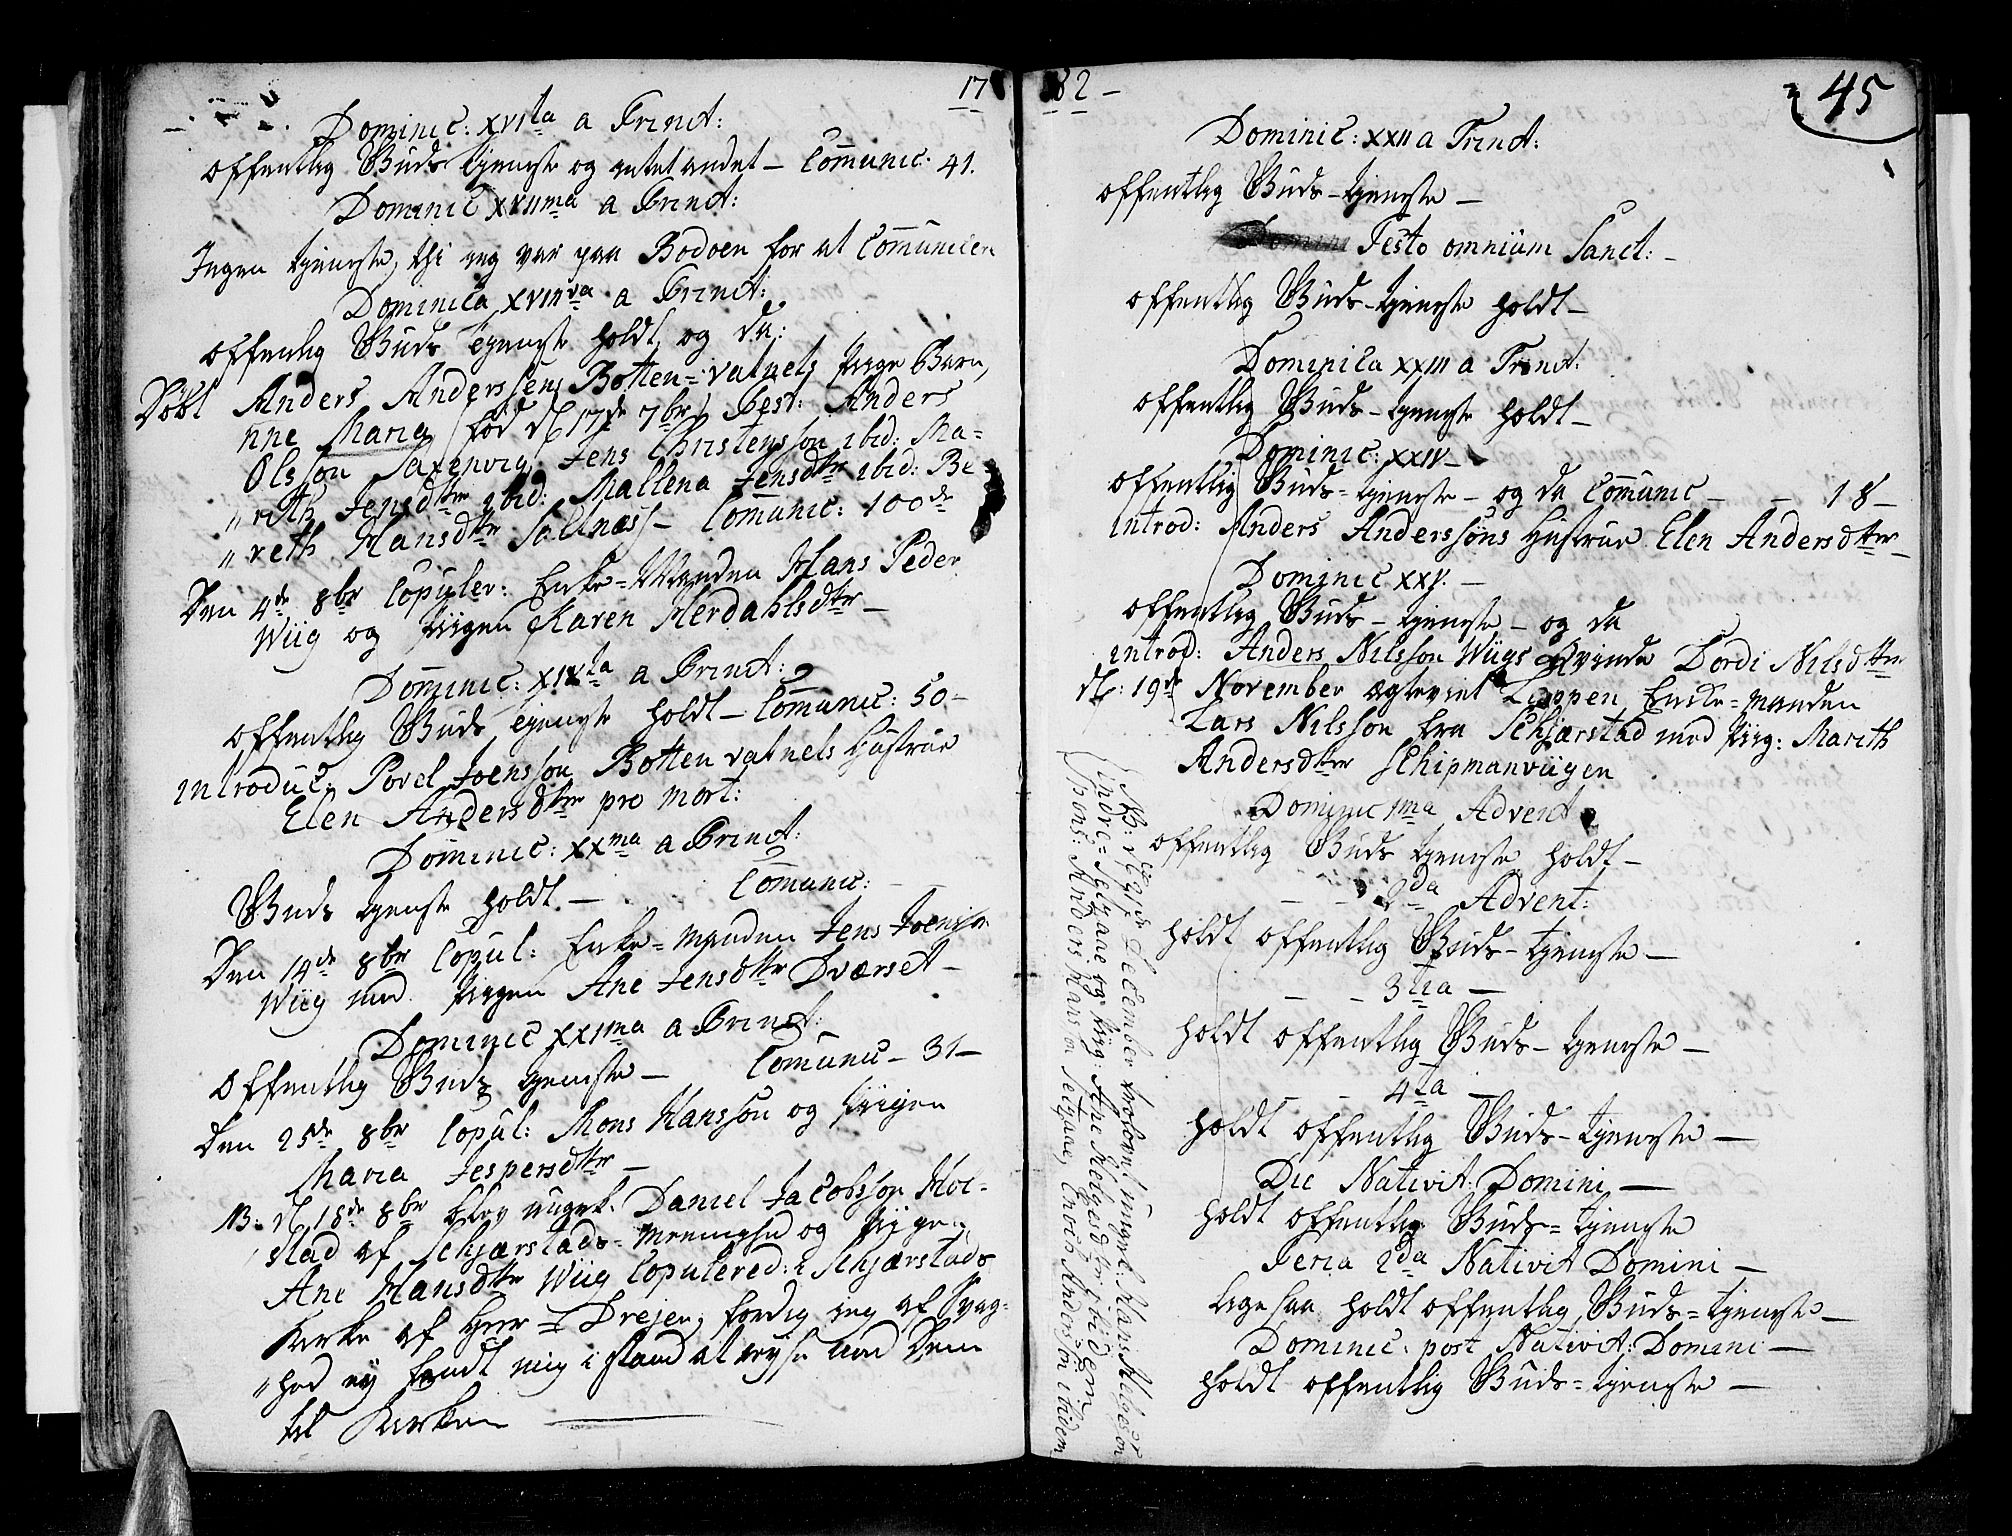 17
Dominic: XVIta a Trinit:
offentlig Guds tieneste og intet andet – Communic. 41.
Dominic XVIIma a Trinit:
Ingen tieneste, thi jeg var paa Bodøen for at Communicere
Dominica XVIIIva a Trinit:
offentlig Guds tieneste holdt, og da:
Døbt Anders Anderssens Botten-vatnets Pige Barn,
nne Maria fød d 17de 7br, Test: Anders
Olsson Saxenvig, Jens Christensson ibid: Ma-
„rith Jensdttr ibid: Mallena Jensdttr ibid: Be-
„reth Hansdttr Saltnæss – Comunic: 100de
Den 4de 8br Copuler: Enke-Manden Hans Peder
Wiig og Pigen Karen Merdahlsdttr –
Dominic: XIXta a Trinit:
offentlig Guds tieneste holdt – Comunic: 50 –
introduc. Povel Joensson Bottenvatnets Hustrue
Elen Andersdttr pro mort:
Dominic: XXma a Trinit:
Guds tieneste holdt – Comunic: – –
Den 14de 8br Copul: Enke-Manden Jens Joensøn
Wiig med Pigen Ane Jensdttr Dværset –
Dominic XXIma a Trinit:
Offentlig Guds tieneste – Comunic – 31 –
Den 25de 8br Copul: Mons Hansson og Pigen
Maria Jespersdttr –
NB: d 18de 8br blev ungk. Daniel Jacobsson Mol-
stad af Schjærstads-Menighed og Pigen
Ane Hansdttr Wiig Copulered: i Schjærstads
Kirke af Herr Drejer, fordig jeg af Svag-
„hed ej fandt mig i stand at rejse ud Dem
til Kirken

82 –
45
Dominic: XXII a Trinit:
offentlig Guds-tieneste –
Domini Festo omnium Sanct: –
offentlig Guds-tieneste holdt –
Dominica XXIII a Trinit:
offentlig Guds-tieneste holdt –
Dominic: XXIV –
offentlig Guds-tieneste – og da Comunic – – 18 –
introd: Anders Anderssøns Hustrue Elen Andersdttr –
Dominic XXV. –
offentlig Guds-tieneste – og da
introd: Anders Nilsson Wiigs Qvinde Dordi Nilsdttr
d: 19de November Egteviet Lappen Enke-manden
Lars Nilsson fra Schjærstad med Pig: Marith
Andersdttr Schipmanviigen
Dominic 1ma Advent
offentlig Guds tieneste holdt –
– – 2da Advent:
holdt offentlig Guds-tieneste –
– – 3tia –
holdt offentlig Guds-tieneste –
– – 4ta –
holdt offentlig Guds-tieneste –
Die Nativit: Domini –
holdt offentlig Guds-tieneste
Feria 2da Nativit Domini –
lige saa holdt offentlig Guds-tieneste –
Dominic: post Nativit: Domini –
holdt offentlig Guds-tieneste –
NB: d 21de December trolovet ungk: Hans Helgeson
indre-Selgaae og Pig: Ane Helgesdttr ibidem
Spons: Anders Hansøn Selgaae, Enoch Andersøn ibidem